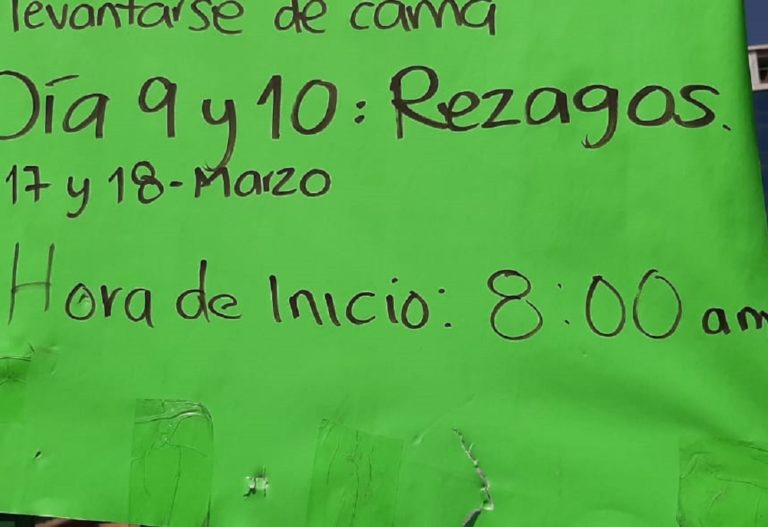 levantarse de cama
Día 9 y 10: Rezagos.
17 y 18-Marzo
Hora de Inicio: 8:00 am